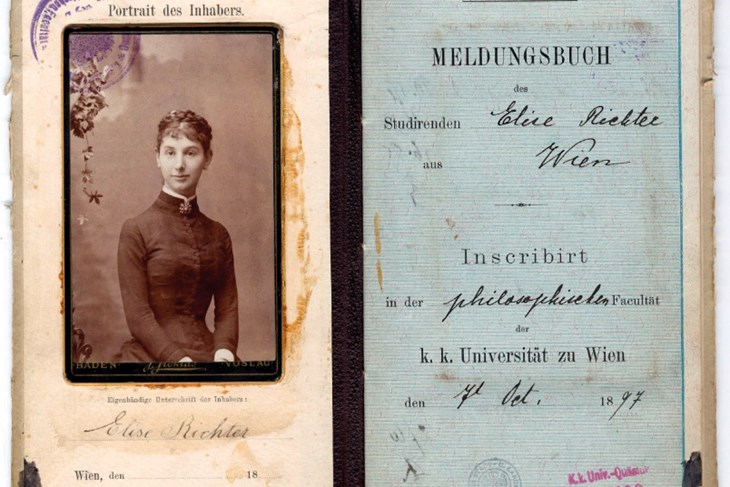 Portrait des Inhabers.
BADEN VÖSLAU
Eigenhändige Unterschrift des Inhabers:
Elise Richter
Wien, den 18
MELDUNGSBUCH
des
Studirenden Elise Richter
aus Wien
Inscribirt
in der philosophischen Facultät
der
k. k. Universität zu Wien
den 7t Oct. 1897
K. k. Univ.-Quästur